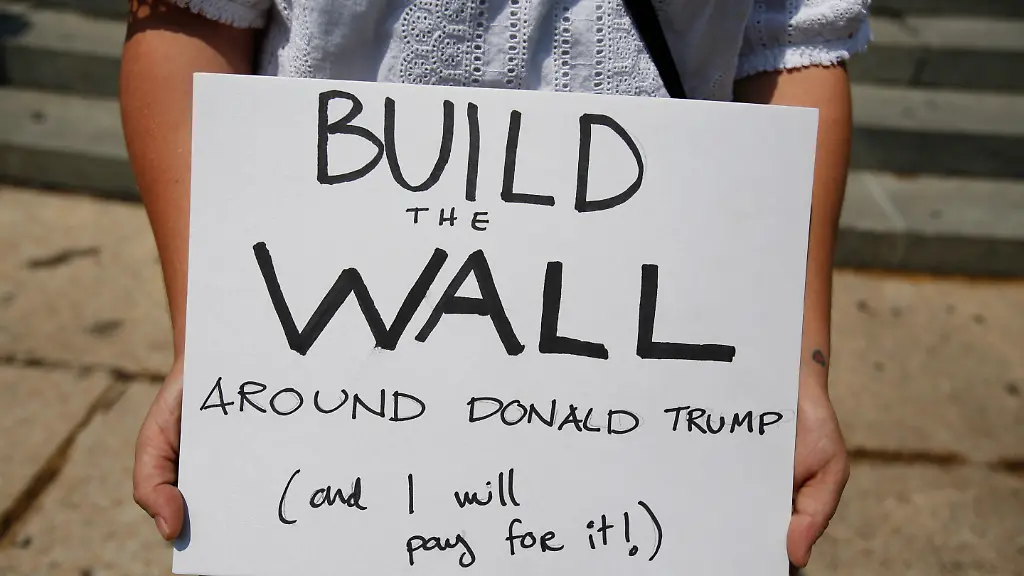 BUILD
THE
WALL
AROUND DONALD TRUMP
(and I will
pay for it!)